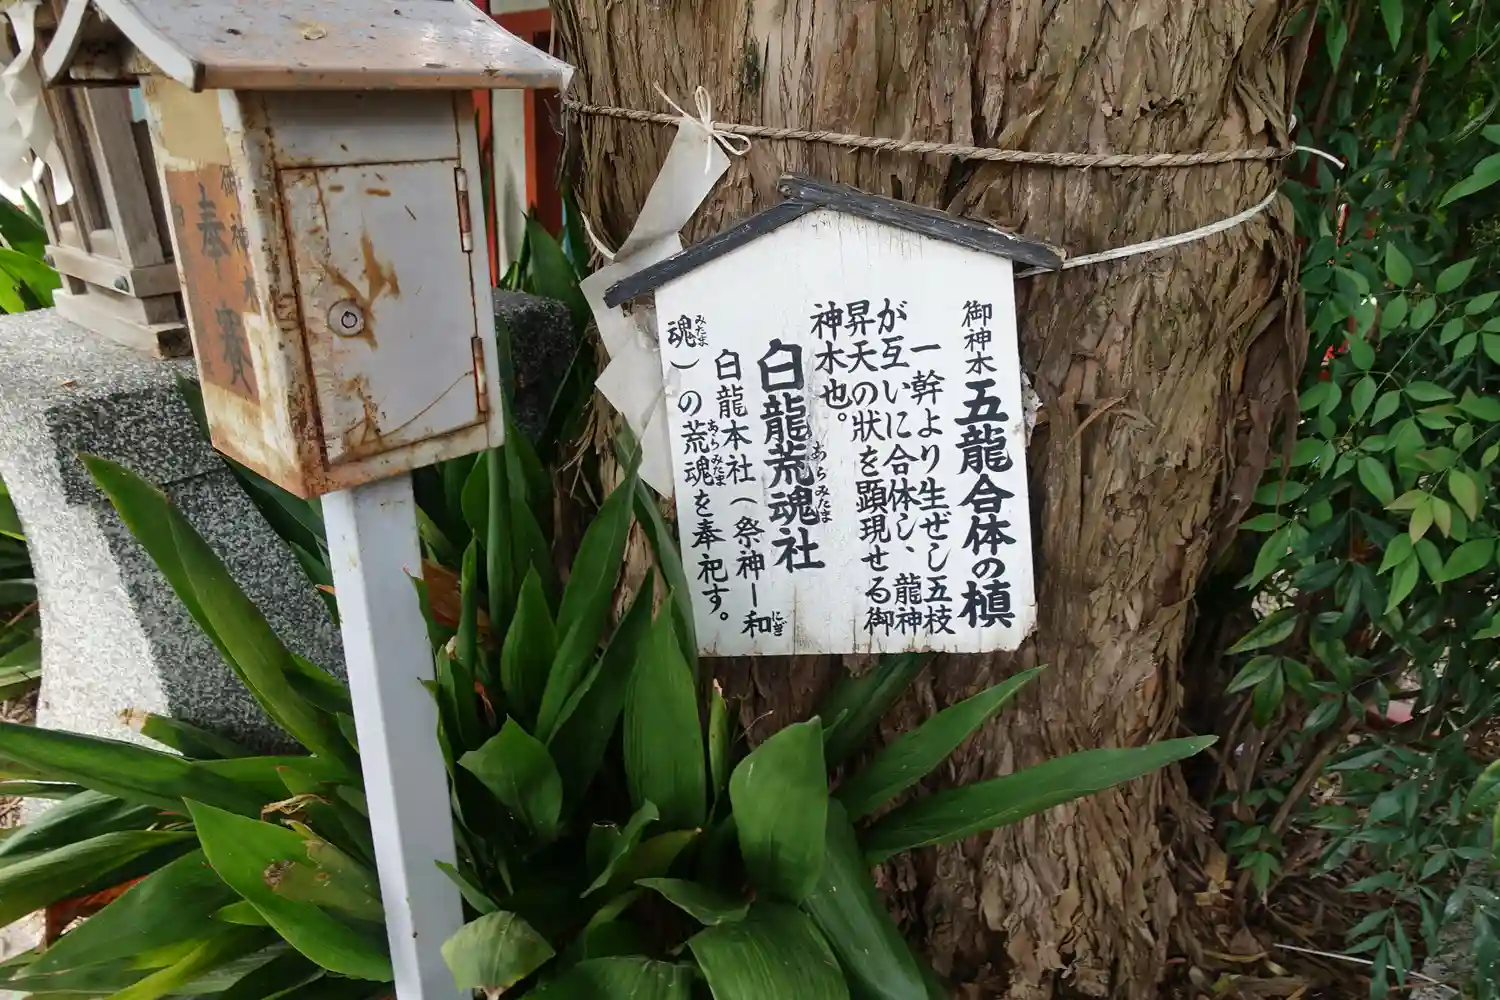 御神木 五龍合体の槙
一幹より生ぜし五枝
が互いに合体し、龍神
昇天の狀を顕現せる御
神木也。
白龍荒魂社
あらみたま
白龍本社(祭神ー和
にぎ
魂)の荒魂を奉祀す。
みたま
あらみたま
御神木
奉賽